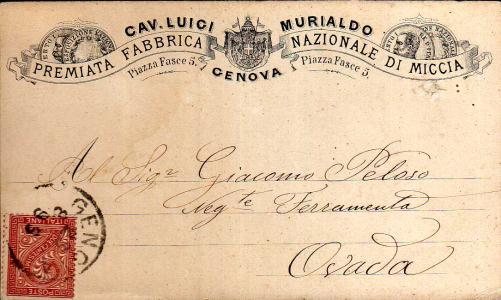 CAV. LUIGI MURIALDO
PREMIATA FABBRICA NAZIONALE DI MICCIA
Piazza Fasce 5. Piazza Fasce 5.
GENOVA
Al Sigr Giacomo Peloso
Negte Ferramenta
Ovada
GENO
POSTE
ITALIANE